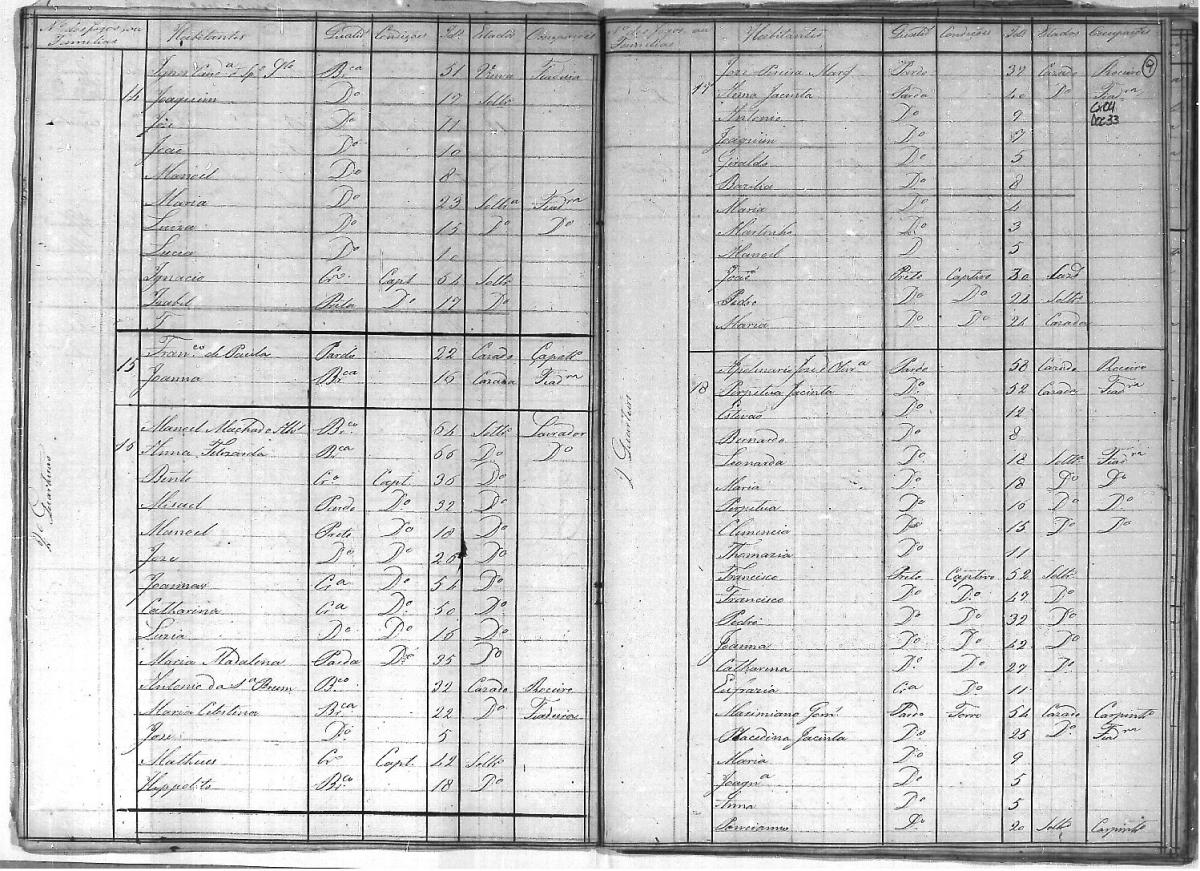 Nº dos fogos ou Familias Habitantes Qualid Condições Idᵉ Estado Ocupações
Bʳᶜᵃ 51 Viuva Fiadeira
14 Joaquim Dº 17 Soltº
José Dº 11
João Dº 10
Manoel Dº 8
Maria Dº 23 Soltª Fiadʳᵃ
Luiza Dº 15 Dº Dº
Lucia Dº 10
Ignacio Crº Capt 64 Soltº
Izabel Dº 17 Dº
15 Franᶜᵒ de Paula Pardo 22 Cazado
Joanna Brᶜᵃ 16 Cazada Fiadʳᵃ
16 Manoel Machado Brᶜᵒ 64 Soltº Lavrador
Anna Brᶜᵃ 60 Dº Dº
Bento Crº Capt 36 Dº
Pardo Dº 32 Dº
Manoel Preto Dº 18 Dº
Jose Dº Dº 26 Dº
Joanna Crª Dº 54 Dº
Catharina Crª Dº 50 Dº
Luzia Dº Dº 16 Dº
Maria Madalena Parda Dº 25 Dº
Antonio da Brᶜᵒ 32 Cazado Roceiro
Maria Celestina Brᶜᵃ 22 Dº Fiadeira
Jose Dº 5
Matheus Crº Capt 42 Soltº
Hyppolito Brᶜᵒ 18 Dº
2º Quarteirão
Nº dos fogos ou Familias Habitantes Qualid Condições Idᵉ Estados Ocupações
9
17 Joze Pereira Pardo 37 Cazado Roceiro
Anna Jacinta Parda 40 Dº Fiadʳᵃ
Cx04
Doc33
Antonio Dº 9
Joaquim Dº 7
Giraldo Dº 5
Bazilia Dº 8
Maria Dº 4
Dº 3
Manoel D 5
José Preto Captivo 30
Pedro Dº Dº 24 Soltº
Maria Dº Dº 24 Cazada
18 Apolinario José d'Olivª Pardo 58 Cazado Roceiro
Perpetua Jacinta Dº 52 Cazada Fiadʳᵃ
Estevão Dº 12
Bernardo Dº 8
Leonarda Dº 18 Soltª Fiadʳᵃ
Maria Dº 18 Dº Dº
Perpetua Dº 16 Dº Dº
Clemencia Dº 15 Dº Dº
Thomazia Dº 11
Francisco Preto Captivo 52 Soltº
Francisco Dº Dº 47 Dº
Pedro Dº Dº 32 Dº
Joanna Dº Dº 42 Dº
Catharina Dº Dº 27 Dº
Eufrazia Crª Dº 11
Maximiano Pardo Forro 54 Cazado Carpintº
Placedina Jacinta Dº 25 Dº Fiadʳᵃ
Maria Dº 9
Joaqnª Dº 5
Anna Dº 5
Ponciano Dº 20 Soltº Carpintº
2º Quarteirão